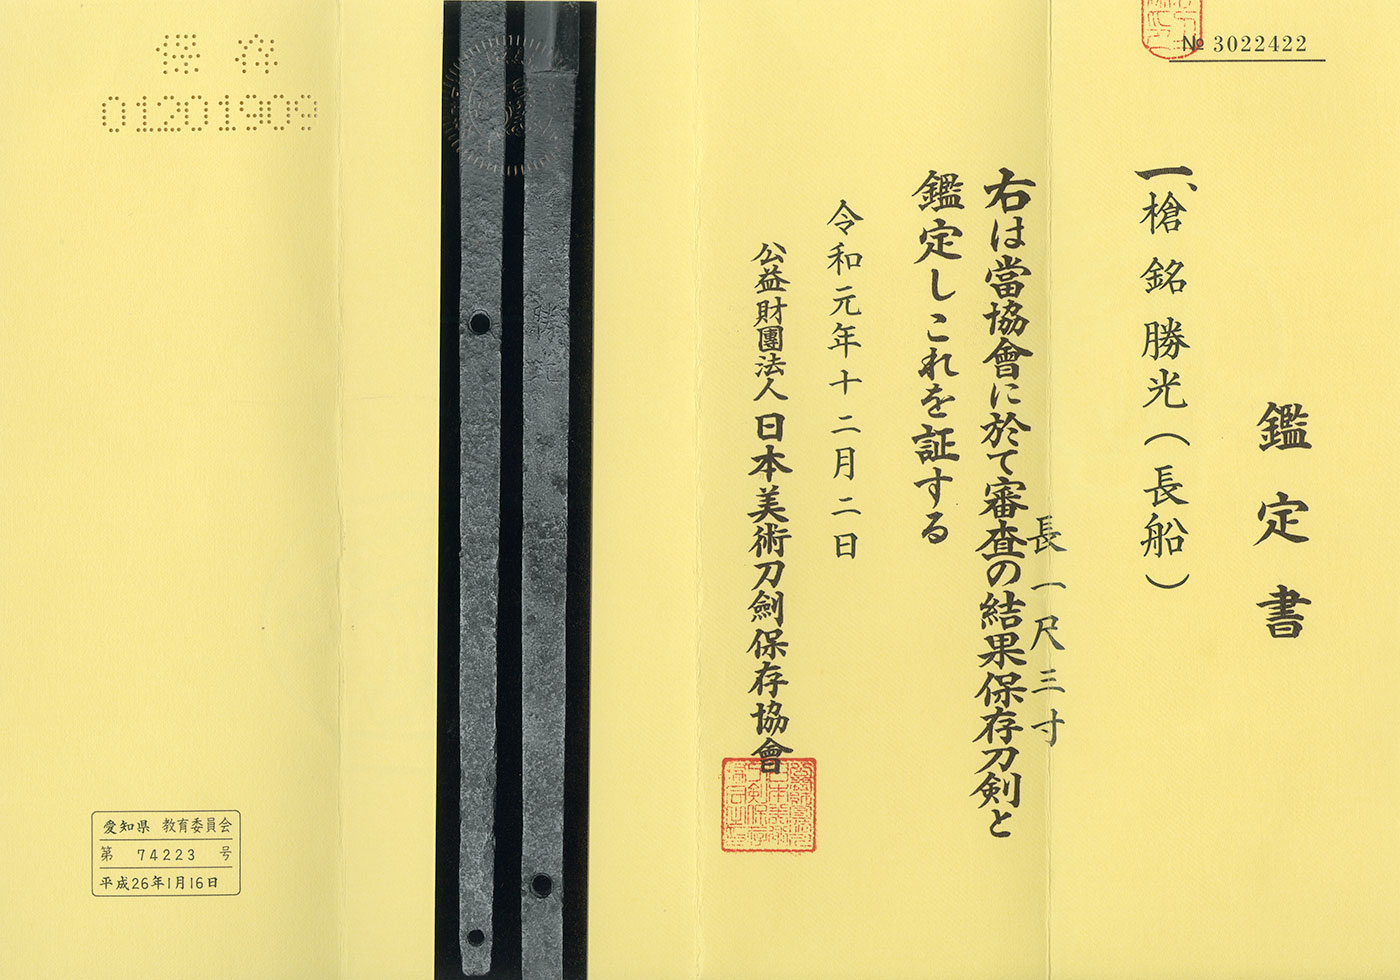 № 3022422
鑑定書
一、槍 銘 勝光(長船)
長一尺三寸
右は當協會に於て審査の結果保存刀剣と
鑑定しこれを証する
令和元年十二月二日
公益財團法人日本美術刀劍保存協會
勝光
保存
01201909
愛知県 教育委員会
第 74223 号
平成26年1月16日